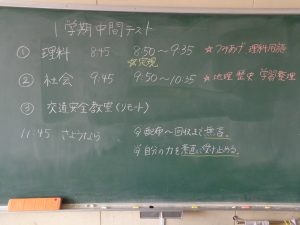 1学期中間テスト
① 理科 8:45 8:50～9:35 ☆フリあげ 理科用語
☆完現
② 社会 9:45 9:50～10:35 ☆地理 歴史 学習整理
③ 交通安全教室(リモート)
11:45 さようなら ☆配布～回収まで無言。
☆自分の力を素直に受け止める。